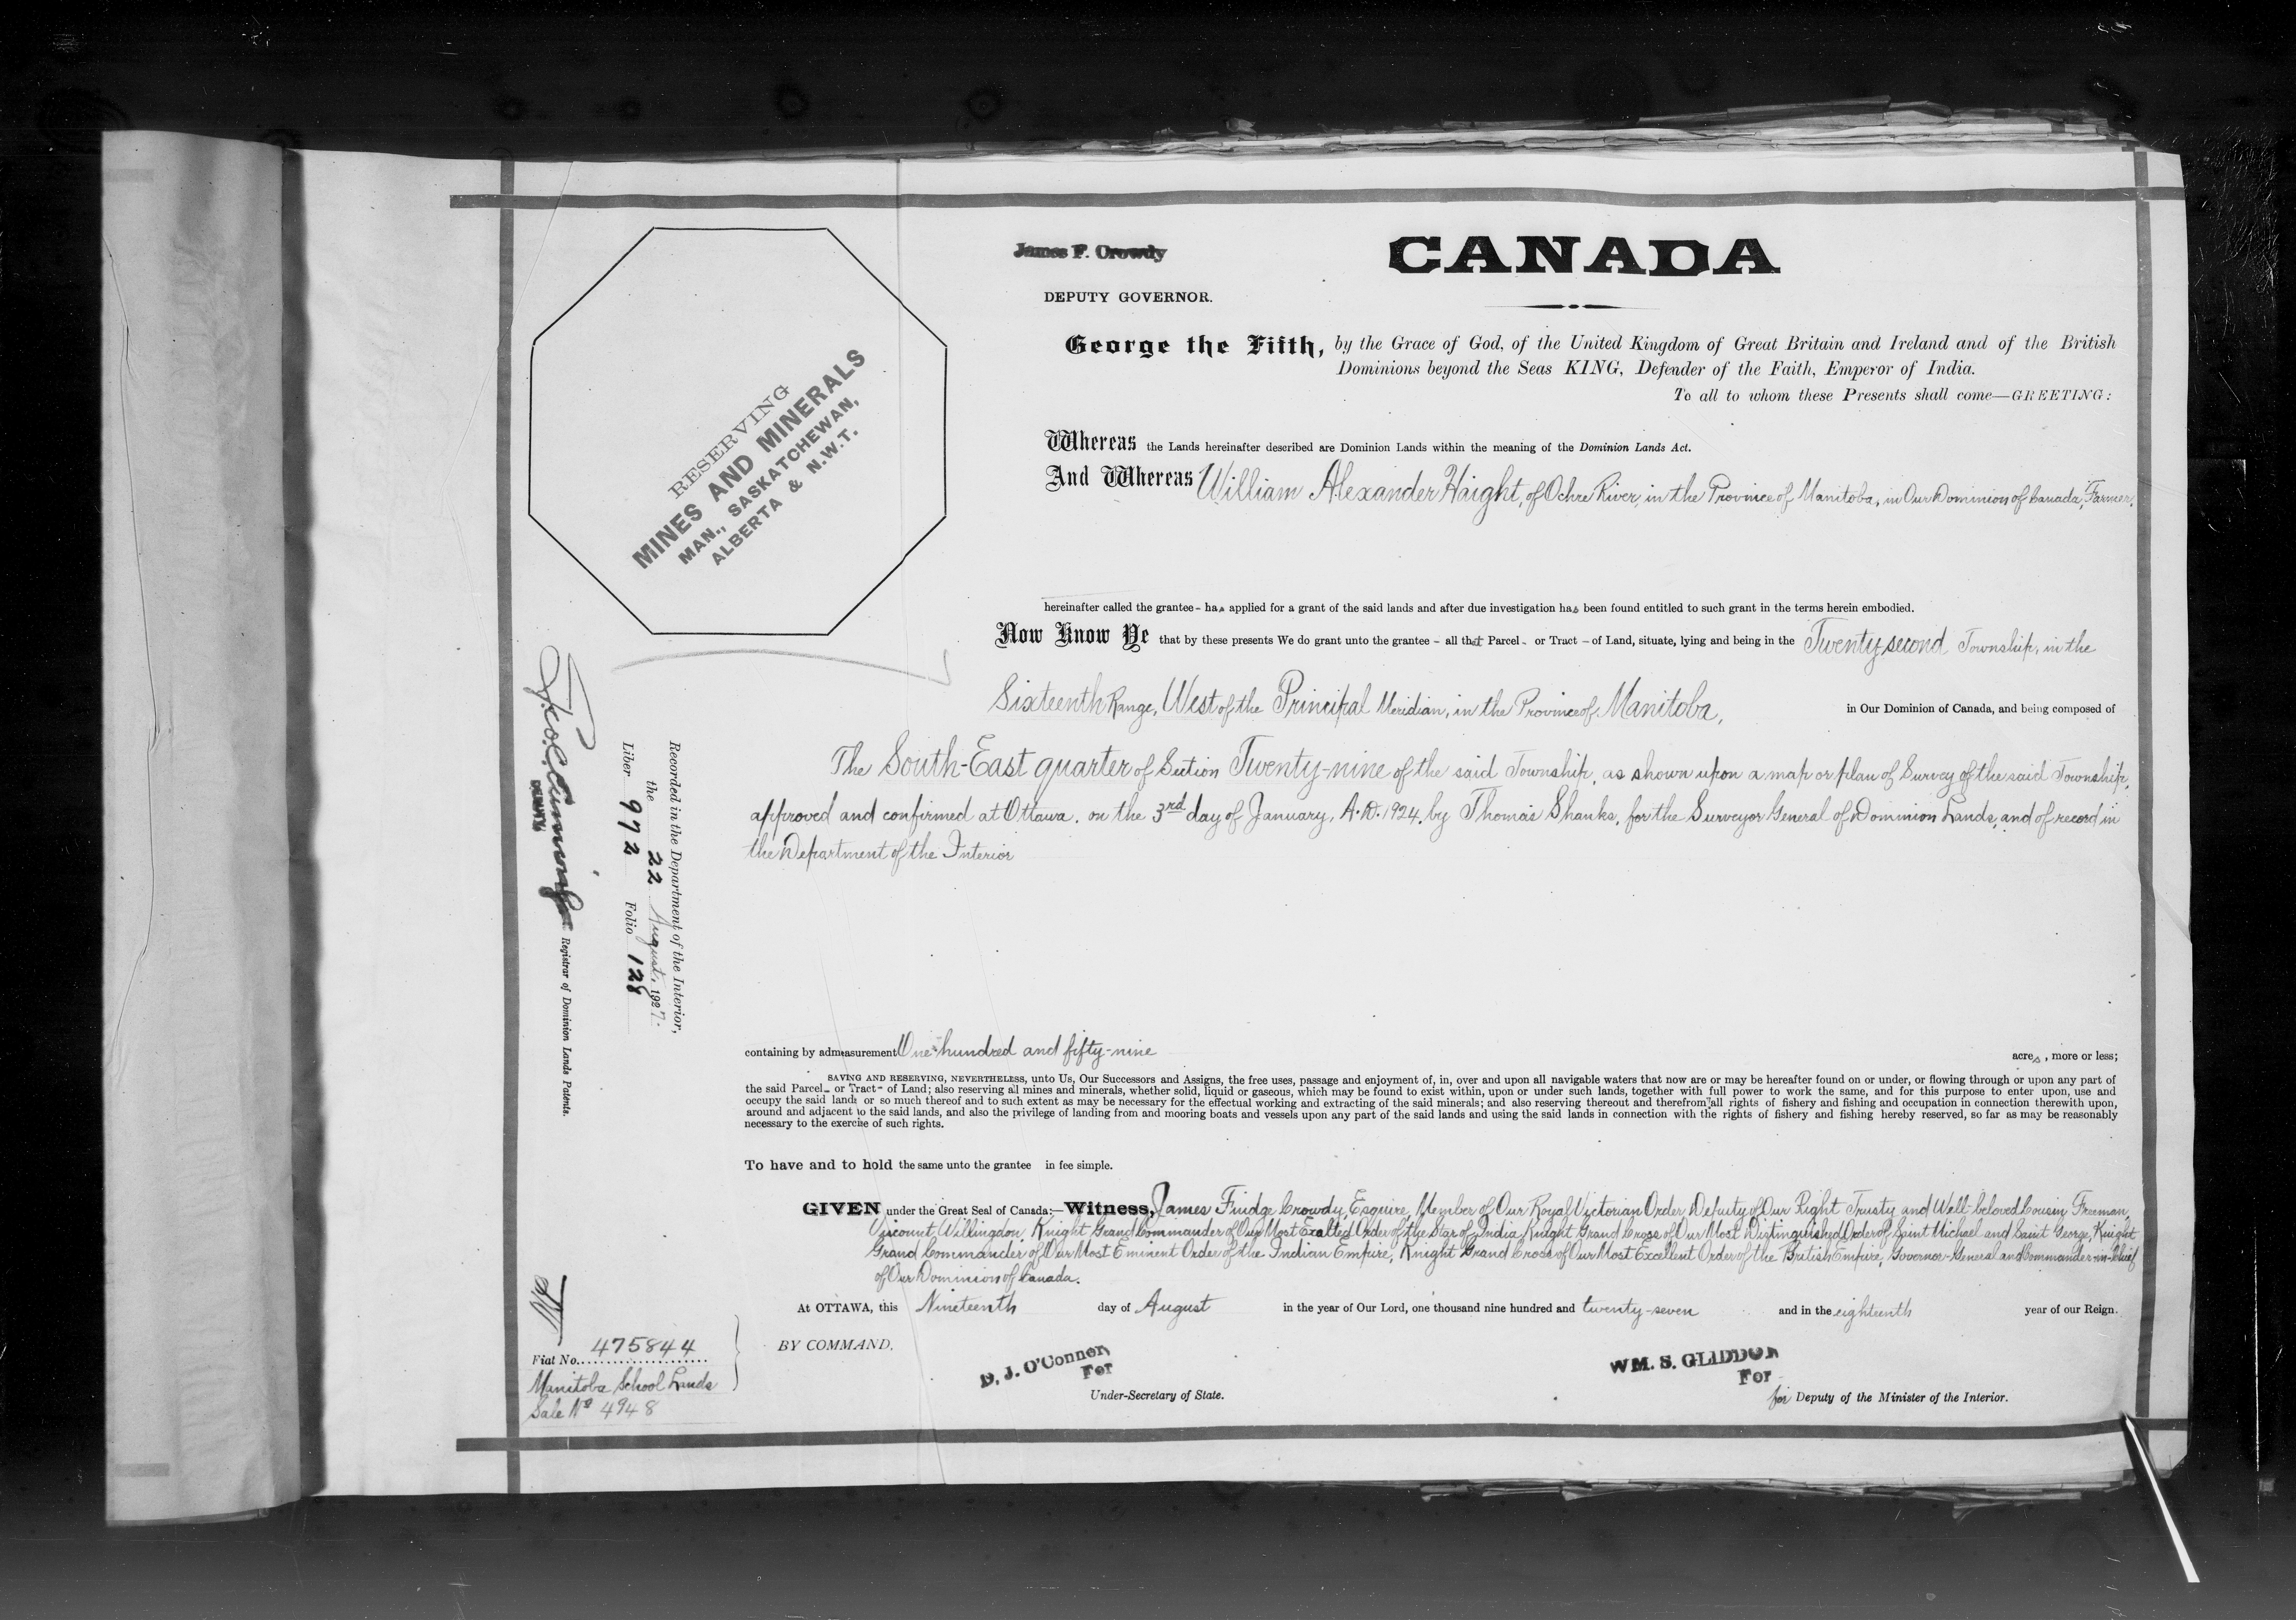 James F. Crowdy
DEPUTY GOVERNOR.
CANADA
George the Fifth, by the Grace of God, of the United Kingdom of Great Britain and Ireland and of the British
Dominions beyond the Seas KING, Defender of the Faith, Emperor of India.
To all to whom these Presents shall come—GREETING:
RESERVING
MINES AND MINERALS
MAN., SASKATCHEWAN,
ALBERTA & N.W.T.
Whereas the Lands hereinafter described are Dominion Lands within the meaning of the Dominion Lands Act.
And Whereas William Alexander Haight, of Ochre River, in the Province of Manitoba, in Our Dominion of Canada, Farmer,
hereinafter called the grantee - has applied for a grant of the said lands and after due investigation has been found entitled to such grant in the terms herein embodied.
Now Know Ye that by these presents We do grant unto the grantee - all that Parcel - or Tract - of Land, situate, lying and being in the Twenty-second Township, in the
Sixteenth Range, West of the Principal Meridian, in the Province of Manitoba, in Our Dominion of Canada, and being composed of
The South-East quarter of Section Twenty-nine of the said Township, as shown upon a map or plan of Survey of the said Township,
approved and confirmed at Ottawa, on the 3rd day of January, A.D. 1924, by Thomas Shanks, for the Surveyor General of Dominion Lands, and of record in
the Department of the Interior
containing by admeasurement One hundred and fifty-nine acres, more or less;
SAVING AND RESERVING, NEVERTHELESS, unto Us, Our Successors and Assigns, the free uses, passage and enjoyment of, in, over and upon all navigable waters that now are or may be hereafter found on or under, or flowing through or upon any part of
the said Parcel - or Tract - of Land; also reserving all mines and minerals, whether solid, liquid or gaseous, which may be found to exist within, upon or under such lands, together with full power to work the same, and for this purpose to enter upon, use and
occupy the said lands or so much thereof and to such extent as may be necessary for the effectual working and extracting of the said minerals; and also reserving thereout and therefrom all rights of fishery and fishing and occupation in connection therewith upon,
around and adjacent to the said lands, and also the privilege of landing from and mooring boats and vessels upon any part of the said lands and using the said lands in connection with the rights of fishery and fishing hereby reserved, so far as may be reasonably
necessary to the exercise of such rights.
To have and to hold the same unto the grantee in fee simple.
GIVEN under the Great Seal of Canada:—Witness, James Fuidge Crowdy, Esquire, Member of Our Royal Victorian Order Deputy of Our Right Trusty and Well-beloved Cousin, Freeman,
Viscount Willingdon, Knight Grand Commander of Our Most Exalted Order of the Star of India, Knight Grand Cross of Our Most Distinguished Order of Saint Michael and Saint George, Knight
Grand Commander of Our Most Eminent Order of the Indian Empire, Knight Grand Cross of Our Most Excellent Order of the British Empire, Governor-General and Commander-in-Chief
of Our Dominion of Canada.
At OTTAWA, this Nineteenth day of August in the year of Our Lord, one thousand nine hundred and twenty-seven and in the eighteenth year of our Reign.
BY COMMAND,
D. J. O'Connor
For
Under-Secretary of State.
WM. S. GLIDDON
For
for Deputy of the Minister of the Interior.
Recorded in the Department of the Interior,
the 22 August, 1927.
Liber 972 Folio 128
DEPUTY
Registrar of Dominion Lands Patents.
Fiat No. 475844
Manitoba School Lands
Sale No 4948